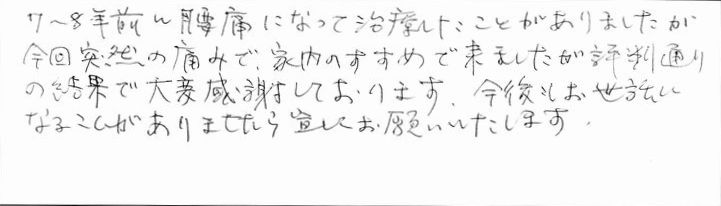 7〜8年前に腰痛になって治療したことがありましたが
今回突然の痛みで、家内のすすめで来ましたが評判通り
の結果で大変感謝しております。今後もお世話に
なることがありましたら宜しくお願いいたします。